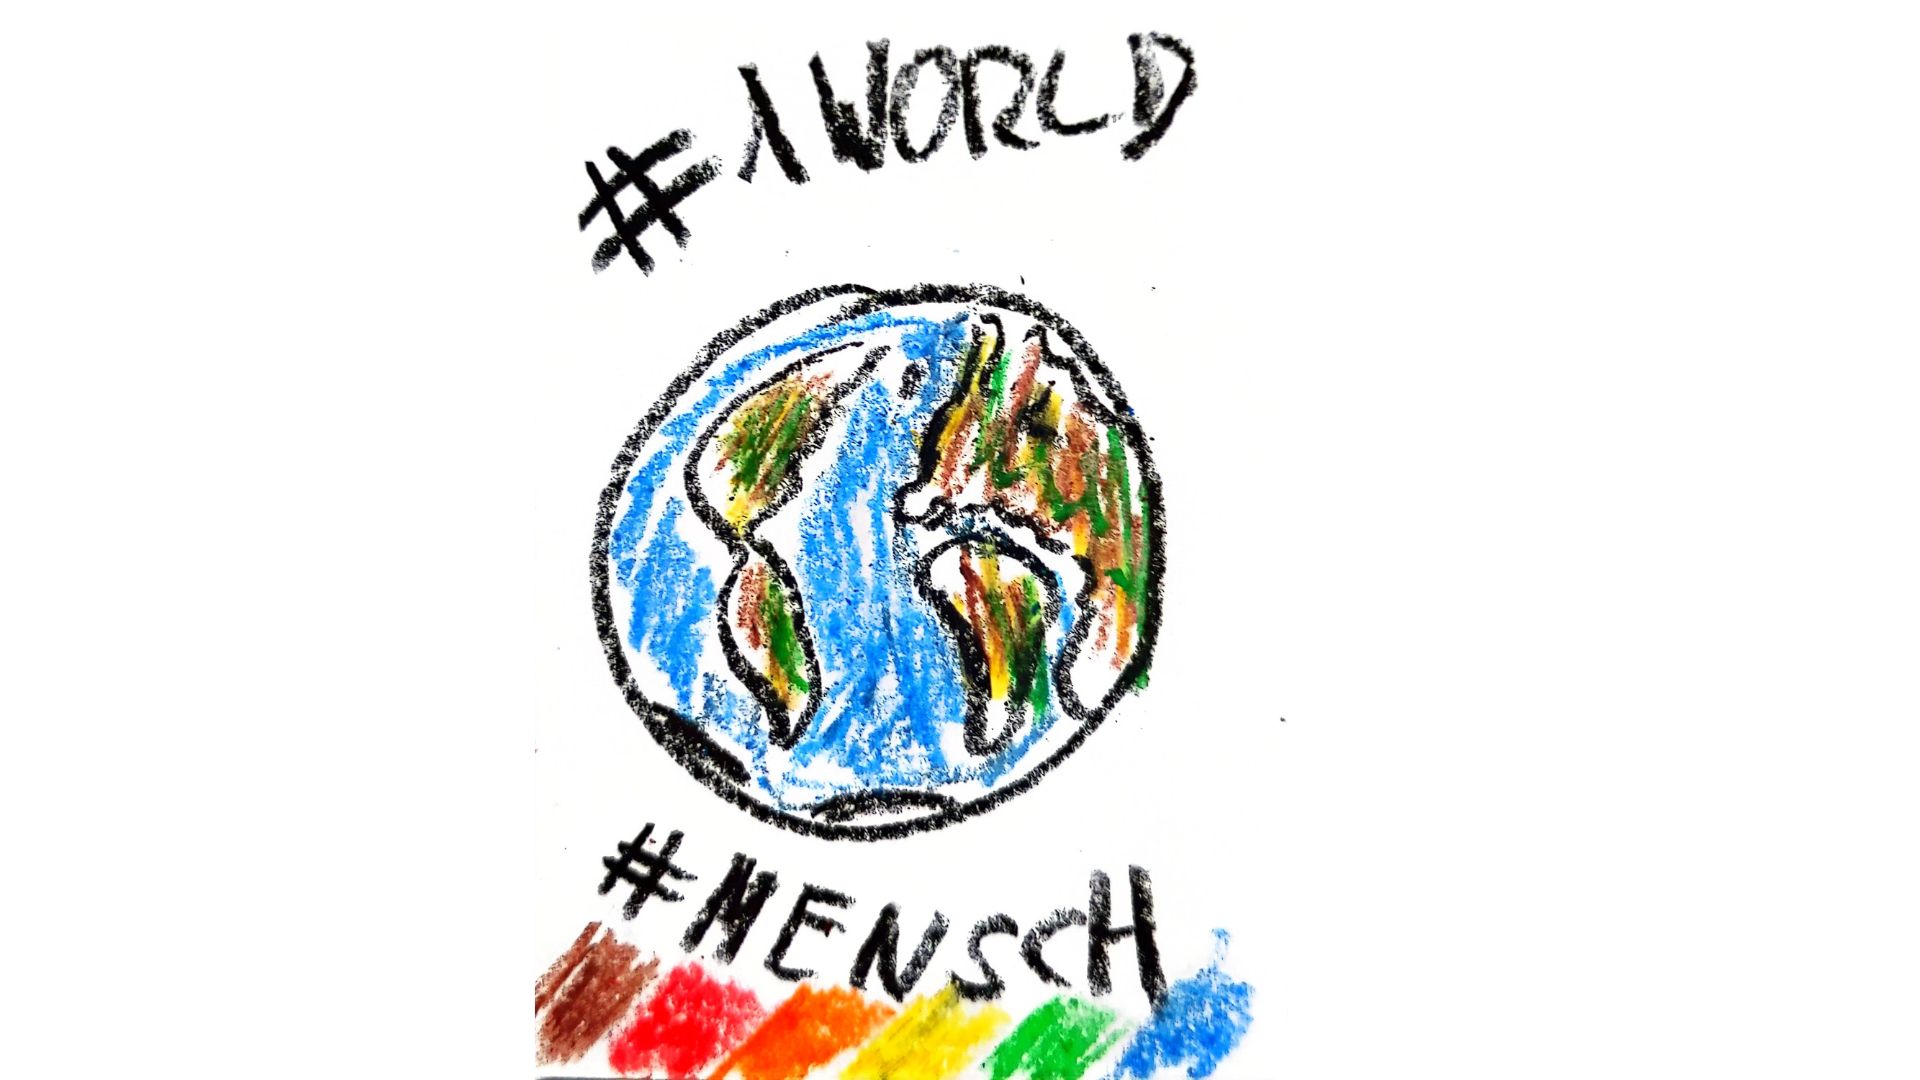 #1WORLD
#MENSCH